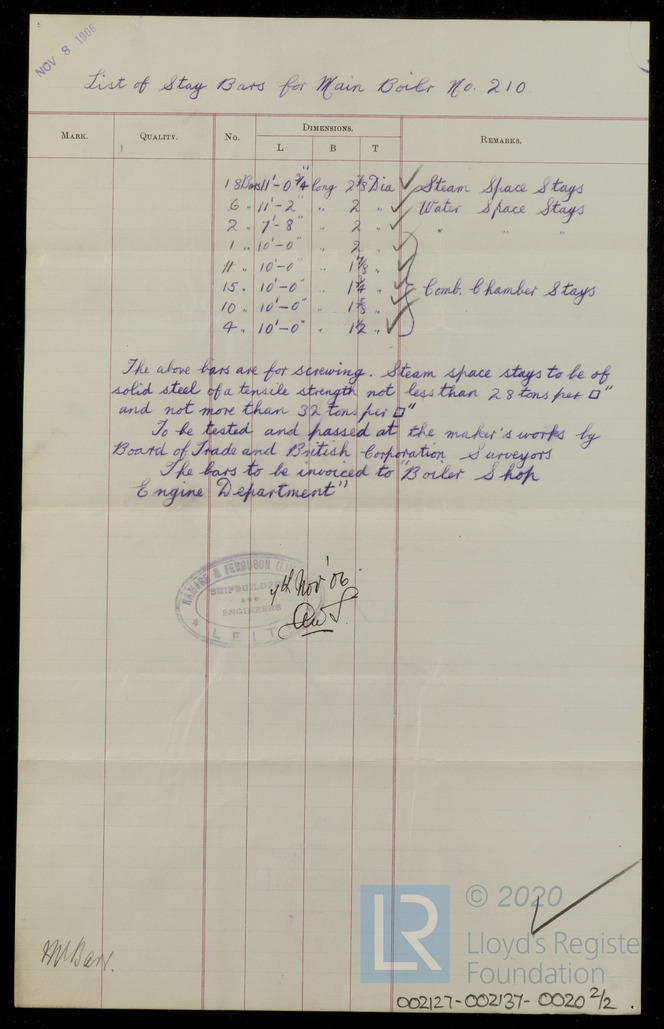 NOV 8 1906
List of Stay Bars for Main Boiler No. 210
MARK. QUALITY. No. DIMENSIONS. REMARKS.
L B T
18 Bars 11'-0 3/4" long 2 7/8 Dia Steam Space Stays
6 " 11'-2" " 2 " Water Space Stays
2 " 7'-8" " 2 " " " "
1 " 10'-0" " 2 "
11 " 10'-0" " 1 7/8 "
15 " 10'-0" " 1 3/4 " Comb. Chamber Stays
10 " 10'-0" " 1 5/8 "
4 " 10'-0" " 1 1/2 "
The above bars are for screwing. Steam space stays to be of
solid steel of a tensile strength not less than 28 tons per □"
and not more than 32 tons per □"
To be tested and passed at the maker's works by
Board of Trade and British Corporation Surveyors
The bars to be invoiced to "Boiler Shop
Engine Department"
RAMAGE & FERGUSON
SHIPBUILDERS
AND
ENGINEERS
LEITH
7th Nov '06
© 2020
Lloyd's Register
Foundation
LR
002127-002137-0020 2/2